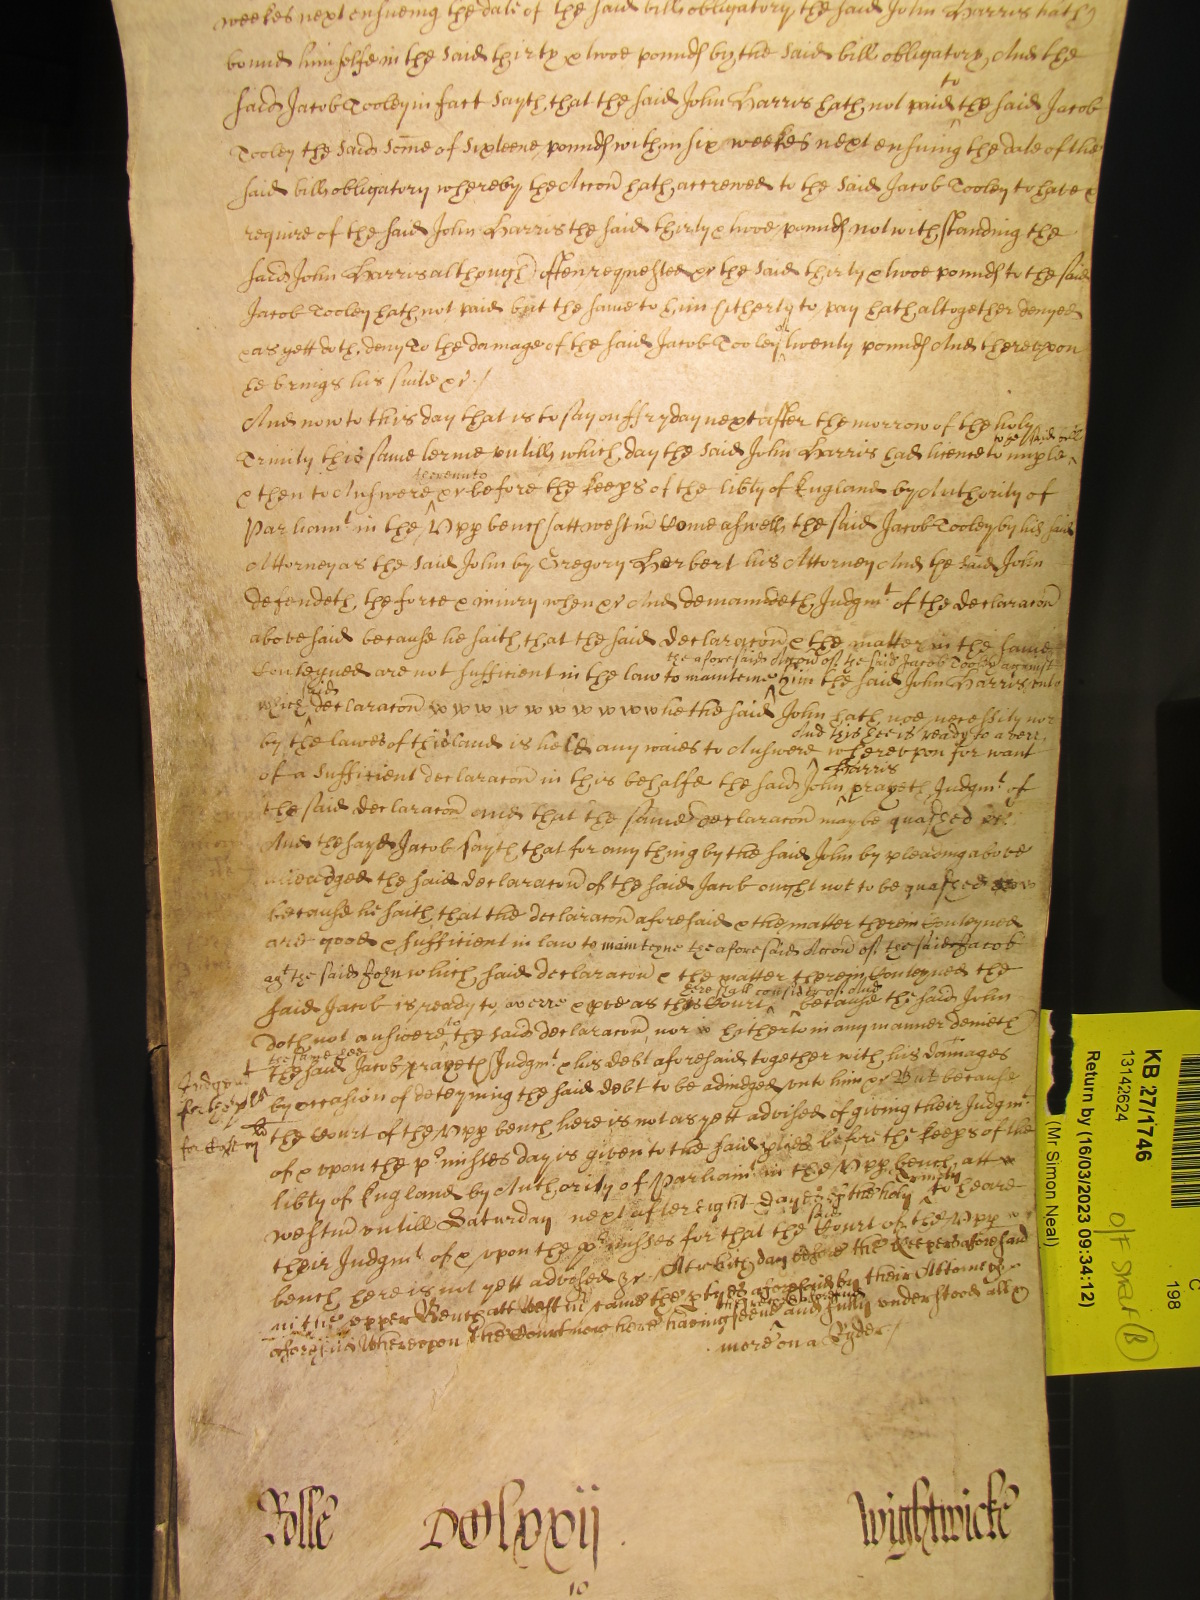 weekes next ensueing the date of the said bill obligatory, the said John Harris hath
bound himselfe in the said thirty & twoe pounds by the said bill obligatory, And the
said Jacob Tooley in fact sayth, that the said John Harris hath not paid to the said Jacob
Tooley the said Some of Sixteene pounds within six weekes next ensuing the date of the
said bill obligatory whereby the Accon hath accrewed to the said Jacob Tooley to have &
require of the said John Harris the said thirty & twoe pounds notwithstanding the
said John Harris although often requested &c the said thirty & twoe pounds to the said
Jacob Tooley hath not paid but the same to him hitherty to pay hath altogether denyed
& as yett doth deny To the damage of the said Jacob Tooley of twenty pounds And thereupon
he brings his suite &c /
And now to this day that is to say on ffryday next after the morrow of the holy
Trinity this same terme untill which day the said John Harris had licence to imple to the said bill
& then to Answere &c before the keeps of the libty of England by Authority of
Parliamt in the Upp bench att westm Come aswell the said Jacob Tooley by his said
Attorney as the said John by Gregory Herbert his Attorney And the said John
defendeth the force & iniury when &c And demandeth Judgmt of the declaracon
abovesaid because he saith that the said declaracon & the matter in the same
Conteyned are not sufficient in the law to mainteine the aforesaid Accon of the said Jacob Tooley against him the said John Harris unto
which said declaracon he the said John hath noe necessity nor
by the lawes of this land is held any waies to Answere And this hee is ready to averr, whereupon for want
of a sufficient declaracon in this behalfe the said John Harris prayeth Judgmt of
the said declaracon and that the same declaracon may be quashed &c
And the sayd Jacob sayth that for any thing by the said John by pleading above
alleadged the said declaracon of the said Jacob ought not to be quashed
because he saith that the declaracon aforesaid & the matter therein Conteyned
are good & sufficient in law to mainteyne the aforesaid Accon of the said Jacob
agt the said John which said declaracon & the matter therein Conteyned the
said Jacob is ready to averre & prove as the Court here shall consider of And because the said John
doth not answere to the said declaracon nor hitherto in any manner denieth
the same hee the said Jacob prayeth Judgmt & his debt aforesaid together with his damages
by occasion of deteyning the said debt to be adiudged unto him &c But because
Judgmt
for the plt
the Court of the Upp bench here is not as yett advised of giving their Judgmt
of & upon the pmisses day is given to the said pties before the keeps of the
libty of England by Authority of Parliamt in the Upp bench att
westm untill Saturday next after eight dayes of the holy Trinity to heare
their Judgmt of & upon the pmisses for that the said Court of the Upp
bench here is not yett advised &c / At which day before the keepers aforesaid
in the upper Bench att westm came the ptyes aforesaid by their Attorneys
aforesaid Whereupon the Court now here having seene and fully understood all
more on a Ryder /
Rolle DClxxij Wightwicke
10
KB 27/1746
13142624
Return by (16/03/2023 09:34:12)
(Mr Simon Neal)
C
198
O/F Strat (B)